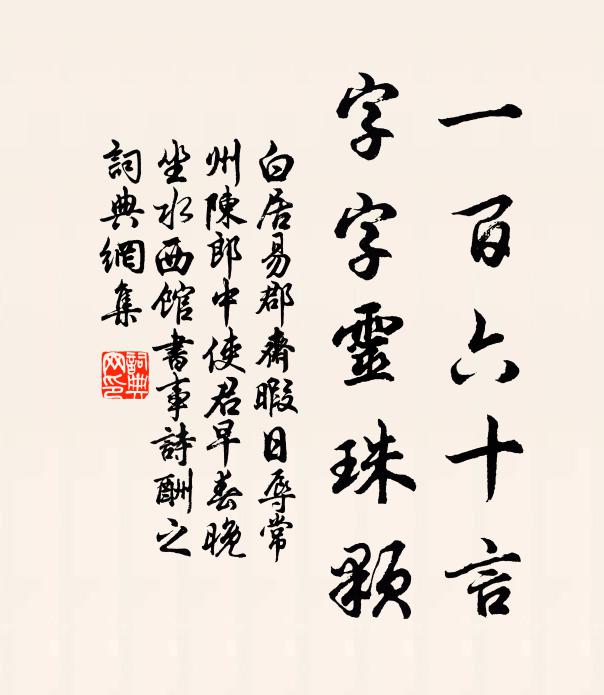 一百六十言
字字靈珠顆
白居易郡齋暇日辱常
州陳郎中使君早春晚
坐水西館書事詩酬之
詞典網集
詞典網印